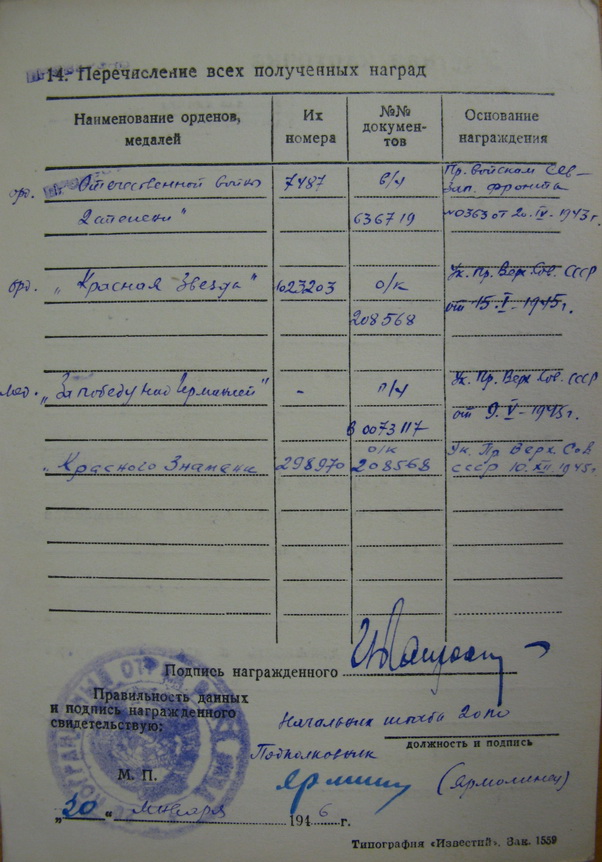 14. Перечисление всех полученных наград
Наименование орденов, медалей
Их номера
№№ документов
Основание награждения
орд. Отечественной войны 7487 в/ч Пр. Войскам Сев-
Зап. фронта
2 степени" 636719 №0363 от 20.IV-1943г.
орд. „Красная Звезда" 623203 о/к Ук. Пр. Верх. Сов. СССР
208568 от 15.I-1945г.
мед. „За победу над Германией" - Ук. Пр. Верх. Сов. СССР
В 0073117 от 9.V-1945г.
о/к Ук. Пр Верх. Сов
„Красного Знамени 298970 208568 СССР 10.XII.1945г.
Подпись награжденного
Правильность данных
и подпись награжденного
свидетельствую;
Начальник штаба
должность и подпись
Подполковник
М. П.
(Ярмолинец)
„30" Января 1946 г.
Типография «Известий». Зак. 1559